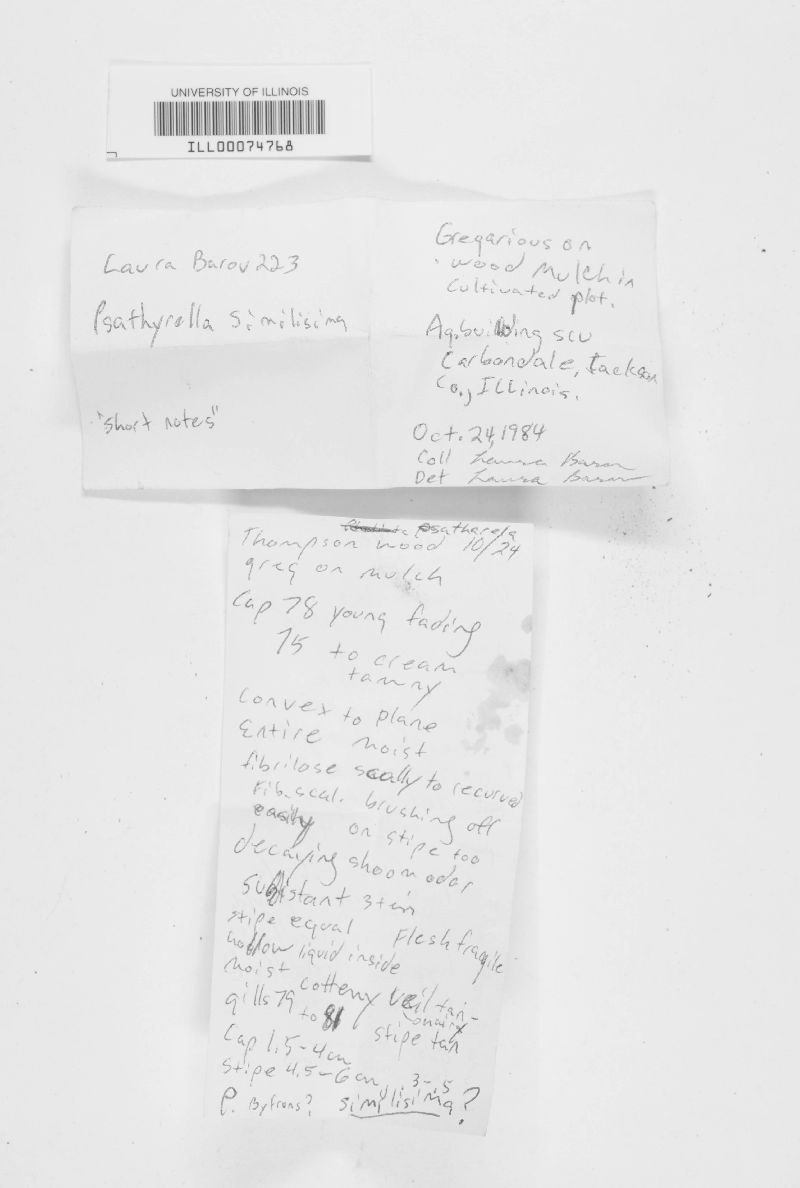 UNIVERSITY OF ILLINOIS
ILL00074768
Laura Barov 223
Psathyrella similisima
"short notes"
Gregarious on
wood mulch in
cultivated plot.
Ag. building SCU
Carbondale, Jackson
Co., Illinois.
Oct. 24, 1984
Coll Laura Baron
Det Laura Baron
Psatharela
Thompson wood 10/24
greg on mulch
Cap 78 young fading
75 to cream
tawny
convex to plane
Entire moist
fibrilose scally to recurved
Fib. scal. brushing off
easily on stipe too
decaying shoom odor
subdistant 3 tein
stipe equal Flesh fragile
hollow liquid inside
moist cotteny veil tan-
gills 79 to 81
stipe tan
Cap 1.5-4cm
Stipe 4.5-6cm, .3-.5
P. Byfrons? similisima?